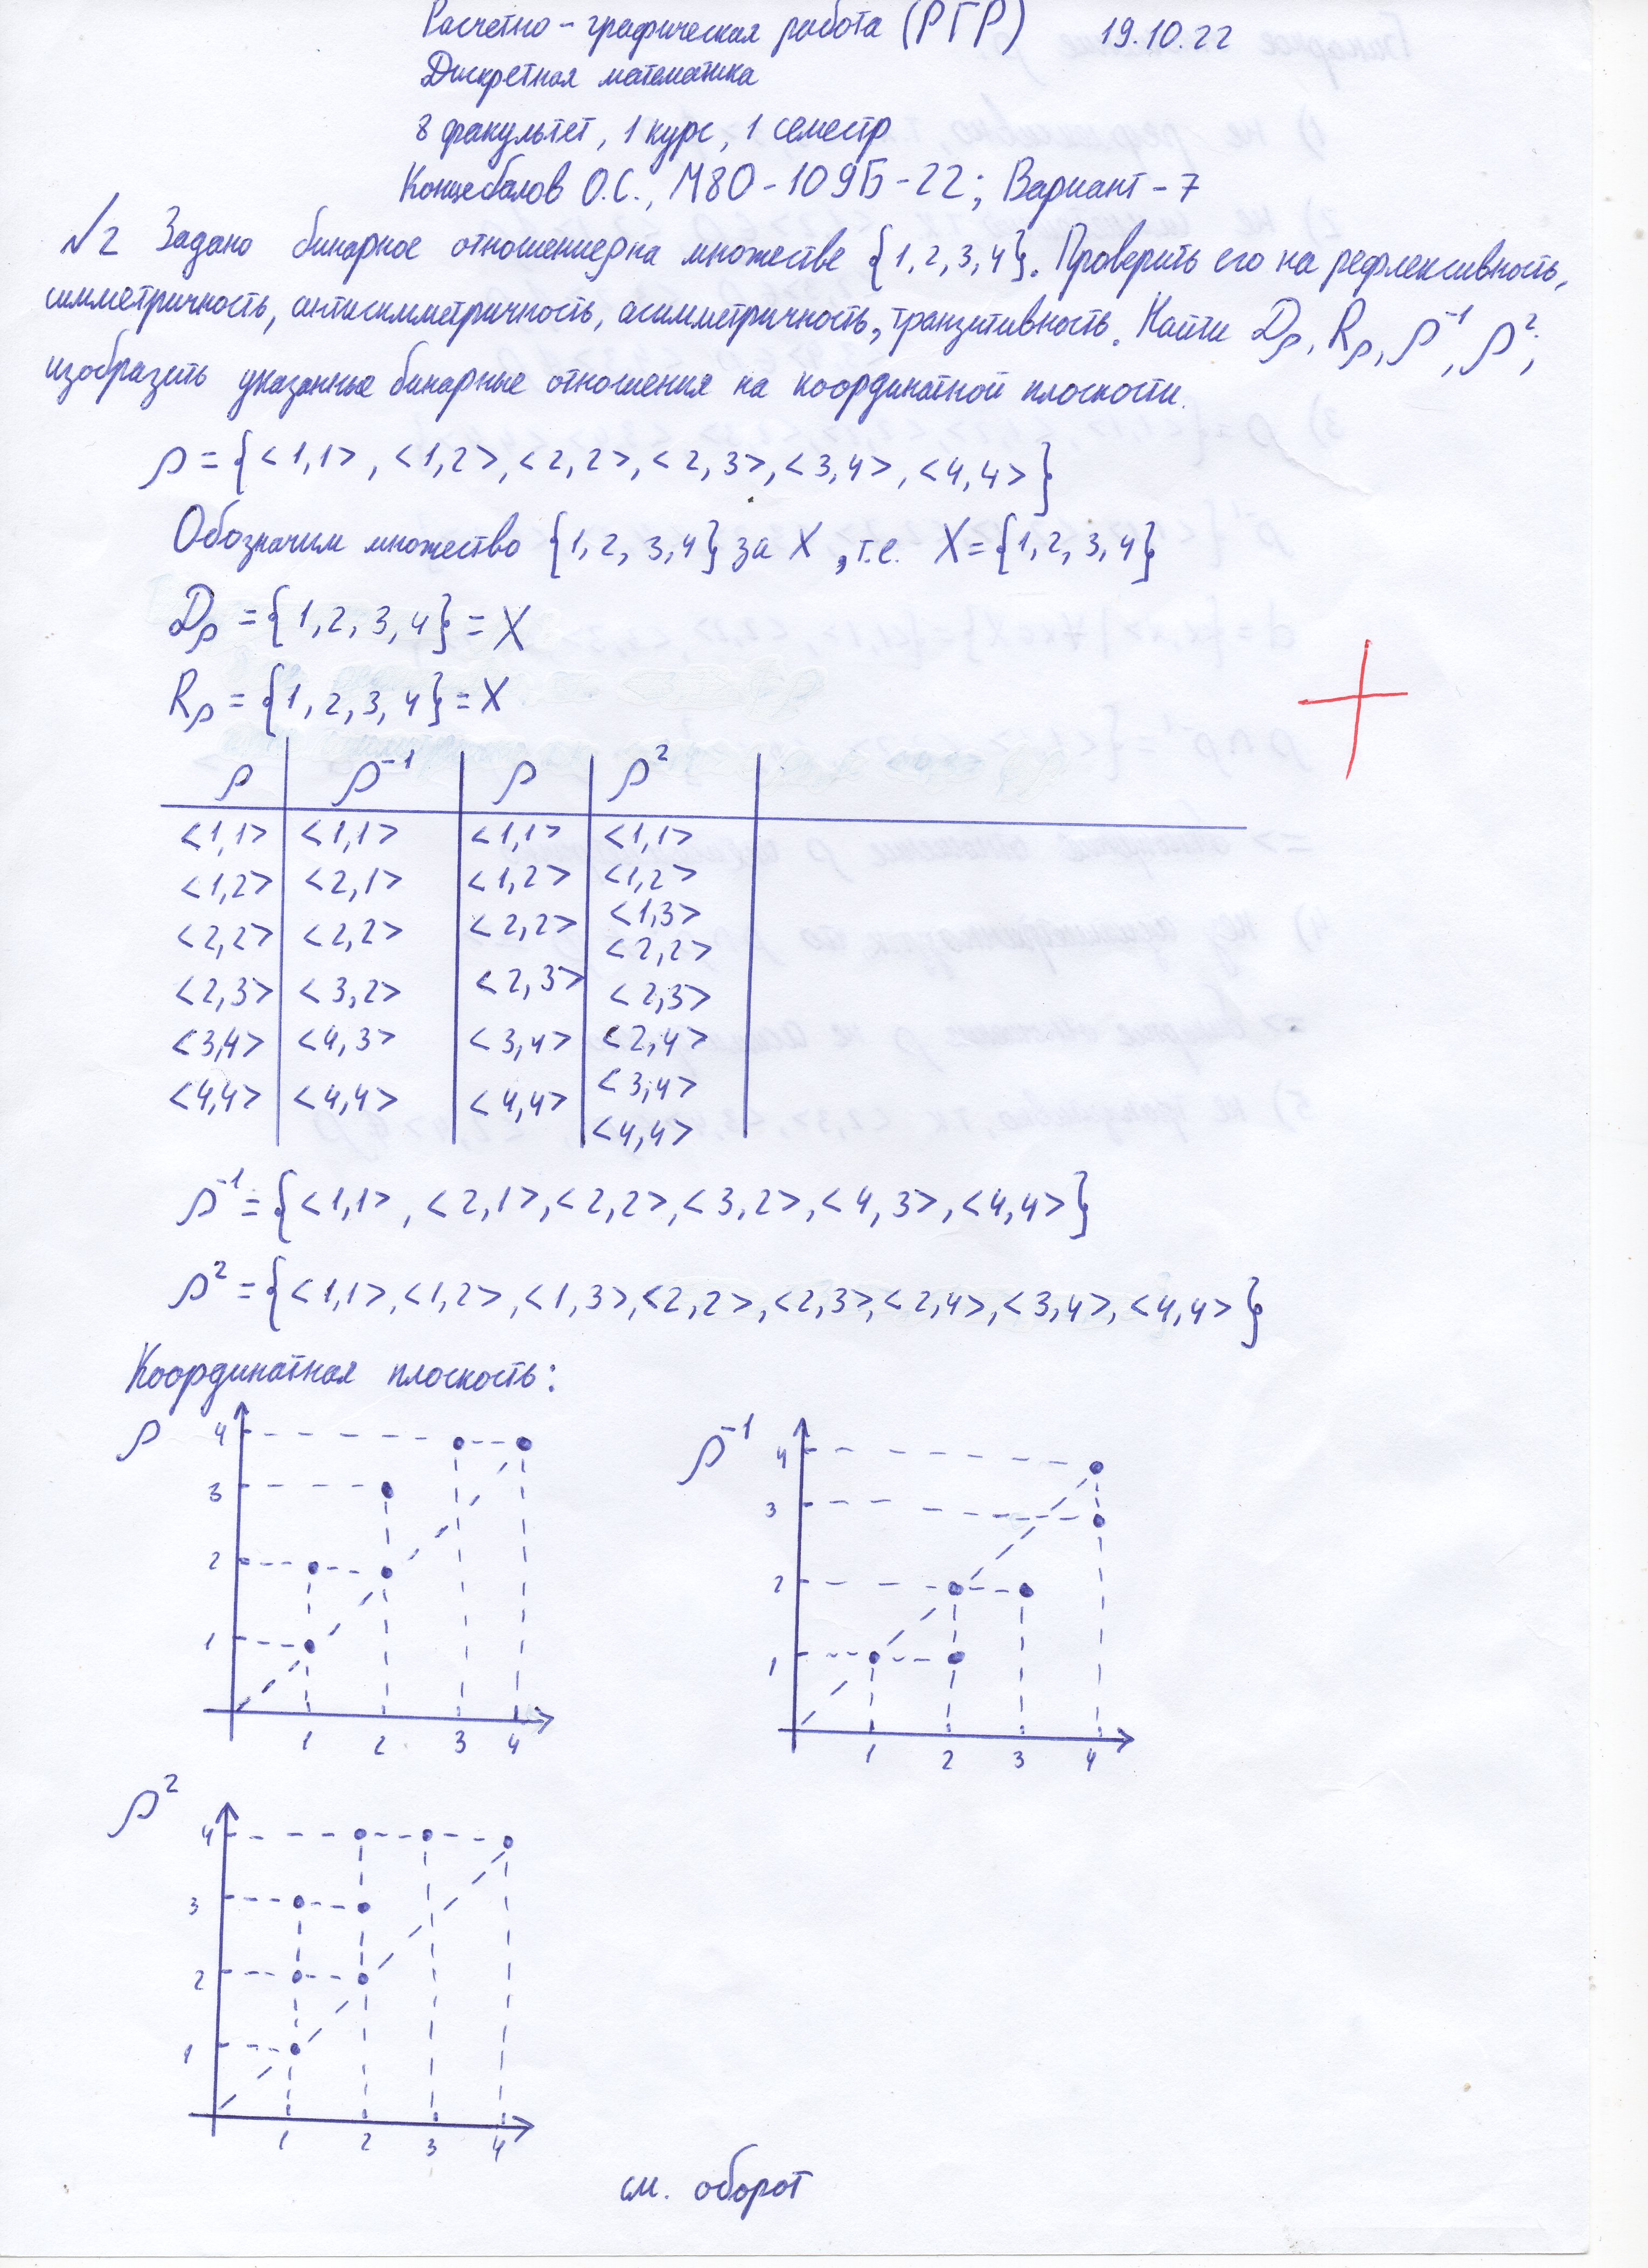 Расчетно-графическая работа (РГР) 19.10.22
Дискретная математика
8 факультет, 1 курс, 1 семестр
Концебалов О.С., М8О-109Б-22; Вариант-7
№2 Задано бинарное отношение ρ на множестве {1,2,3,4}. Проверить его на рефлексивность,
симметричность, антисимметричность, асимметричность, транзитивность. Найти Dρ, Rρ, ρ⁻¹, ρ²;
изобразить указанные бинарные отношения на координатной плоскости.
ρ = {<1,1>, <1,2>, <2,2>, <2,3>, <3,4>, <4,4>}
Обозначим множество {1,2,3,4} за X, т.е. X={1,2,3,4}
Dρ = {1,2,3,4} = X
Rρ = {1,2,3,4} = X
ρ ρ⁻¹ ρ ρ²
<1,1> <1,1> <1,1> <1,1>
<1,2> <2,1> <1,2> <1,2>
<1,3>
<2,2> <2,2> <2,2> <2,2>
<2,3> <3,2> <2,3> <2,3>
<3,4> <4,3> <3,4> <2,4>
<3,4>
<4,4> <4,4> <4,4> <4,4>
ρ⁻¹ = {<1,1>, <2,1>, <2,2>, <3,2>, <4,3>, <4,4>}
ρ² = {<1,1>, <1,2>, <1,3>, <2,2>, <2,3>, <2,4>, <3,4>, <4,4>}
Координатная плоскость:
ρ 4
3
2
1
1 2 3 4
ρ⁻¹ 4
3
2
1
1 2 3 4
ρ² 4
3
2
1
1 2 3 4
см. оборот